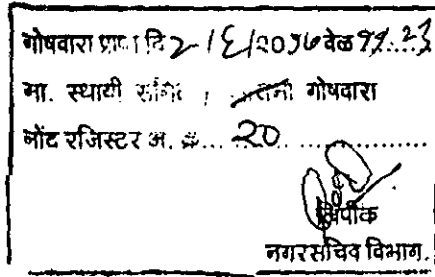 गोषवारा प्राप्त दि 2/6/2017 वेळ 11.23
मा. स्थायी समिती / गोषवारा
नोंद रजिस्टर अ. क्र... 20 ...........
लिपीक
नगरसचिव विभाग.